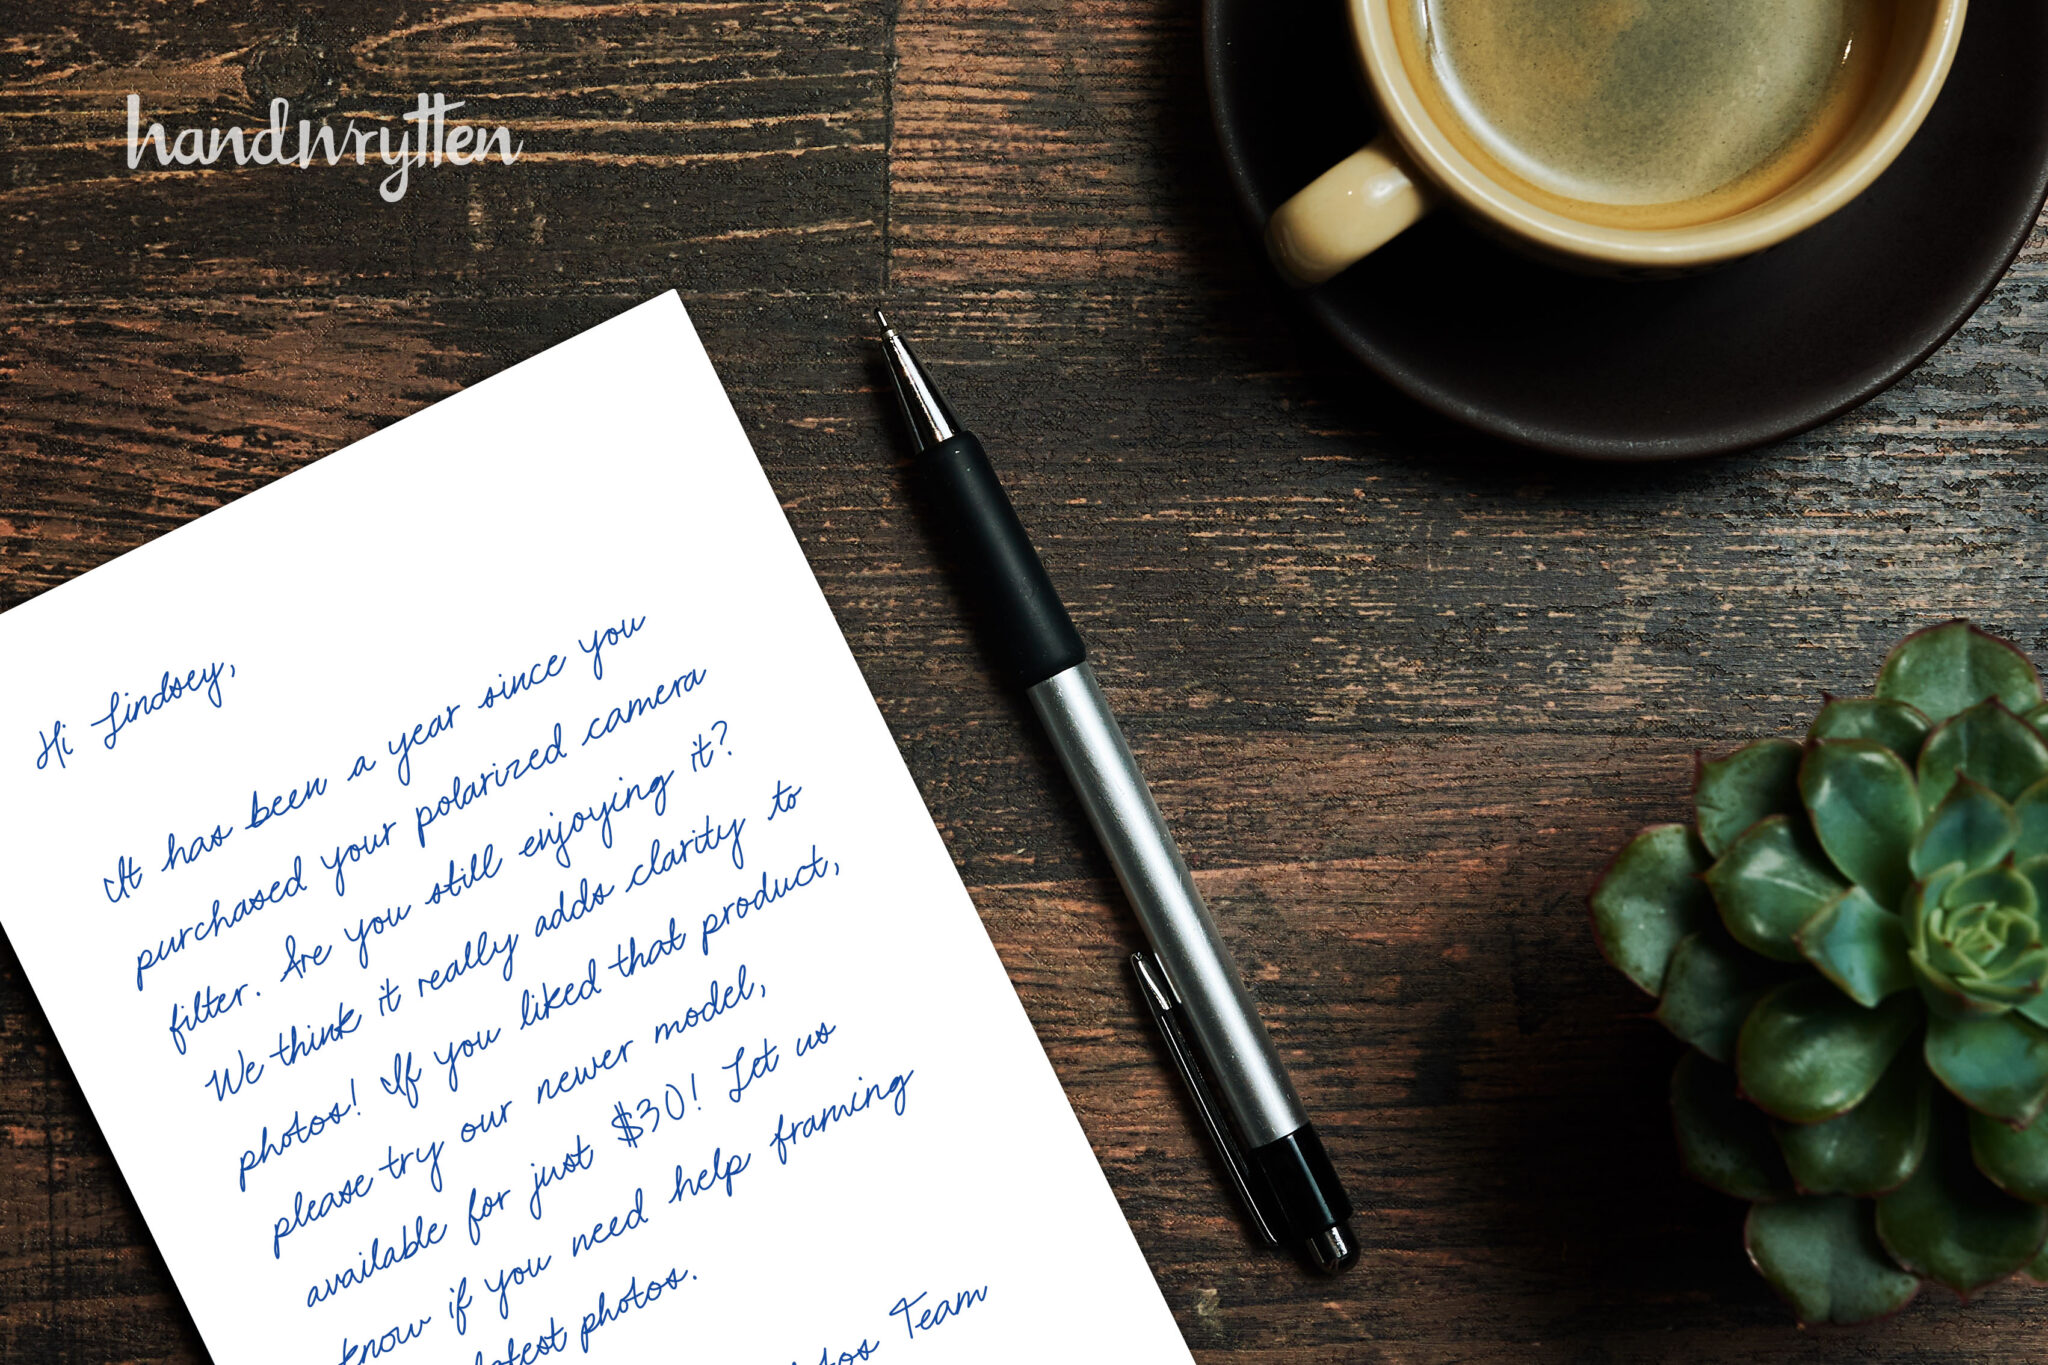 handwrytten
Hi Lindsey,
It has been a year since you
purchased your polarized camera
filter. Are you still enjoying it?
We think it really adds clarity to
photos! If you liked that product,
please try our newer model,
available for just $30! Let us
know if you need help framing
latest photos.
Team